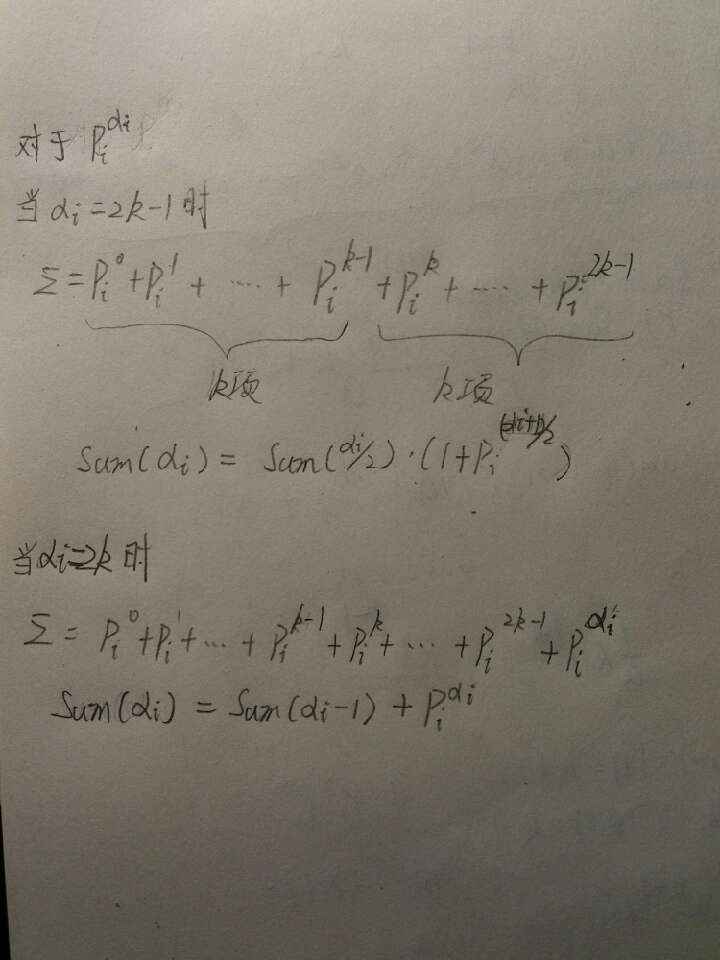 对于 Pᵢ^αᵢ
当 αᵢ=2k-1时
Σ=Pᵢ⁰+Pᵢ¹+····+Pᵢ^(k-1)+Pᵢ^k+····+Pᵢ^(2k-1)
k项 k项
Sum(αᵢ)= Sum(αᵢ/2)·(1+Pᵢ^((αᵢ+1)/2))
当αᵢ=2k时
Σ= Pᵢ⁰+Pᵢ¹+···+Pᵢ^(k-1)+Pᵢ^k+···+Pᵢ^(2k-1)+Pᵢ^αᵢ
Sum(αᵢ) = Sum(αᵢ-1) + Pᵢ^αᵢ